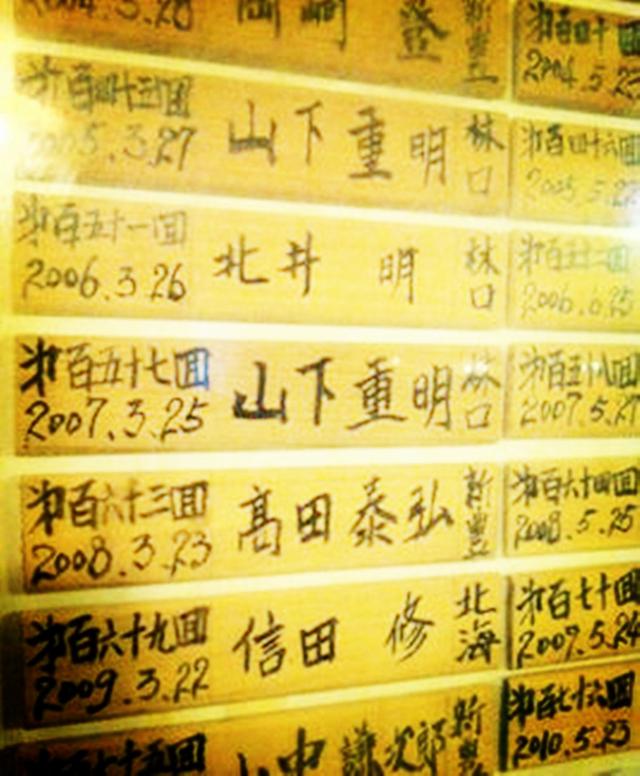 2004.3.28
岡崎 登
新豊
第百四十回
2004.5.23
第百四十五回
2005.3.27
山下重明
林口
第百四十六回
2005.5.22
第百五十一回
2006.3.26
北井 明
林口
第百五十二回
2006.6.25
第百五十七回
2007.3.25
山下重明
林口
第百五十八回
2007.5.27
第百六十三回
2008.3.23
高田泰弘
新豊
第百六十四回
2008.5.25
第百六十九回
2009.3.22
信田 修
北海
第百七十回
2009.5.24
第百七十五回
山中謙次郎
新豊
第百七十六回
2010.5.23